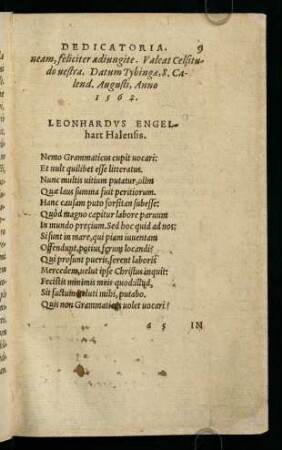 DEDICATORIA. 9
neam, feliciter adiungite. Valeat Celsitu-
do uestra. Datum Tybingæ, 8. Ca-
lend. Augusti, Anno
1564.
LEONHARDVS ENGEL-
hart Halensis.
Nemo Grammaticus cupit uocari:
Et uult quilibet esse litteratus.
Nunc multis uitium putatur, olim
Quæ laus summa fuit peritiorum.
Hanc causam puto forsitan subesse:
Quòd magno capitur labore paruum
In mundo precium. Sed hoc quid ad nos:
Si sunt in mare, qui piam iuuentam
Offendunt, potius ferum locandi:
Qui prosunt pueris, ferent laboris
Mercedem, uelut ipse Christus inquit:
Fecistis minimis meis quod
Sit factum ueluti mihi, putabo.
Quis non Grammaticus uolet uocari?
a 5 IN